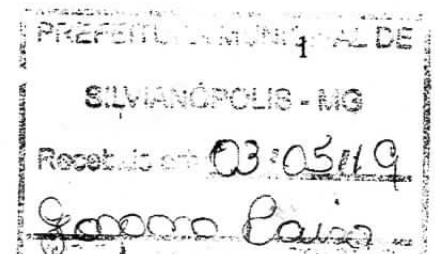 PREFEITURA MUNICIPAL DE
1
SILVIANÓPOLIS - MG
Recebido em 03.05.19